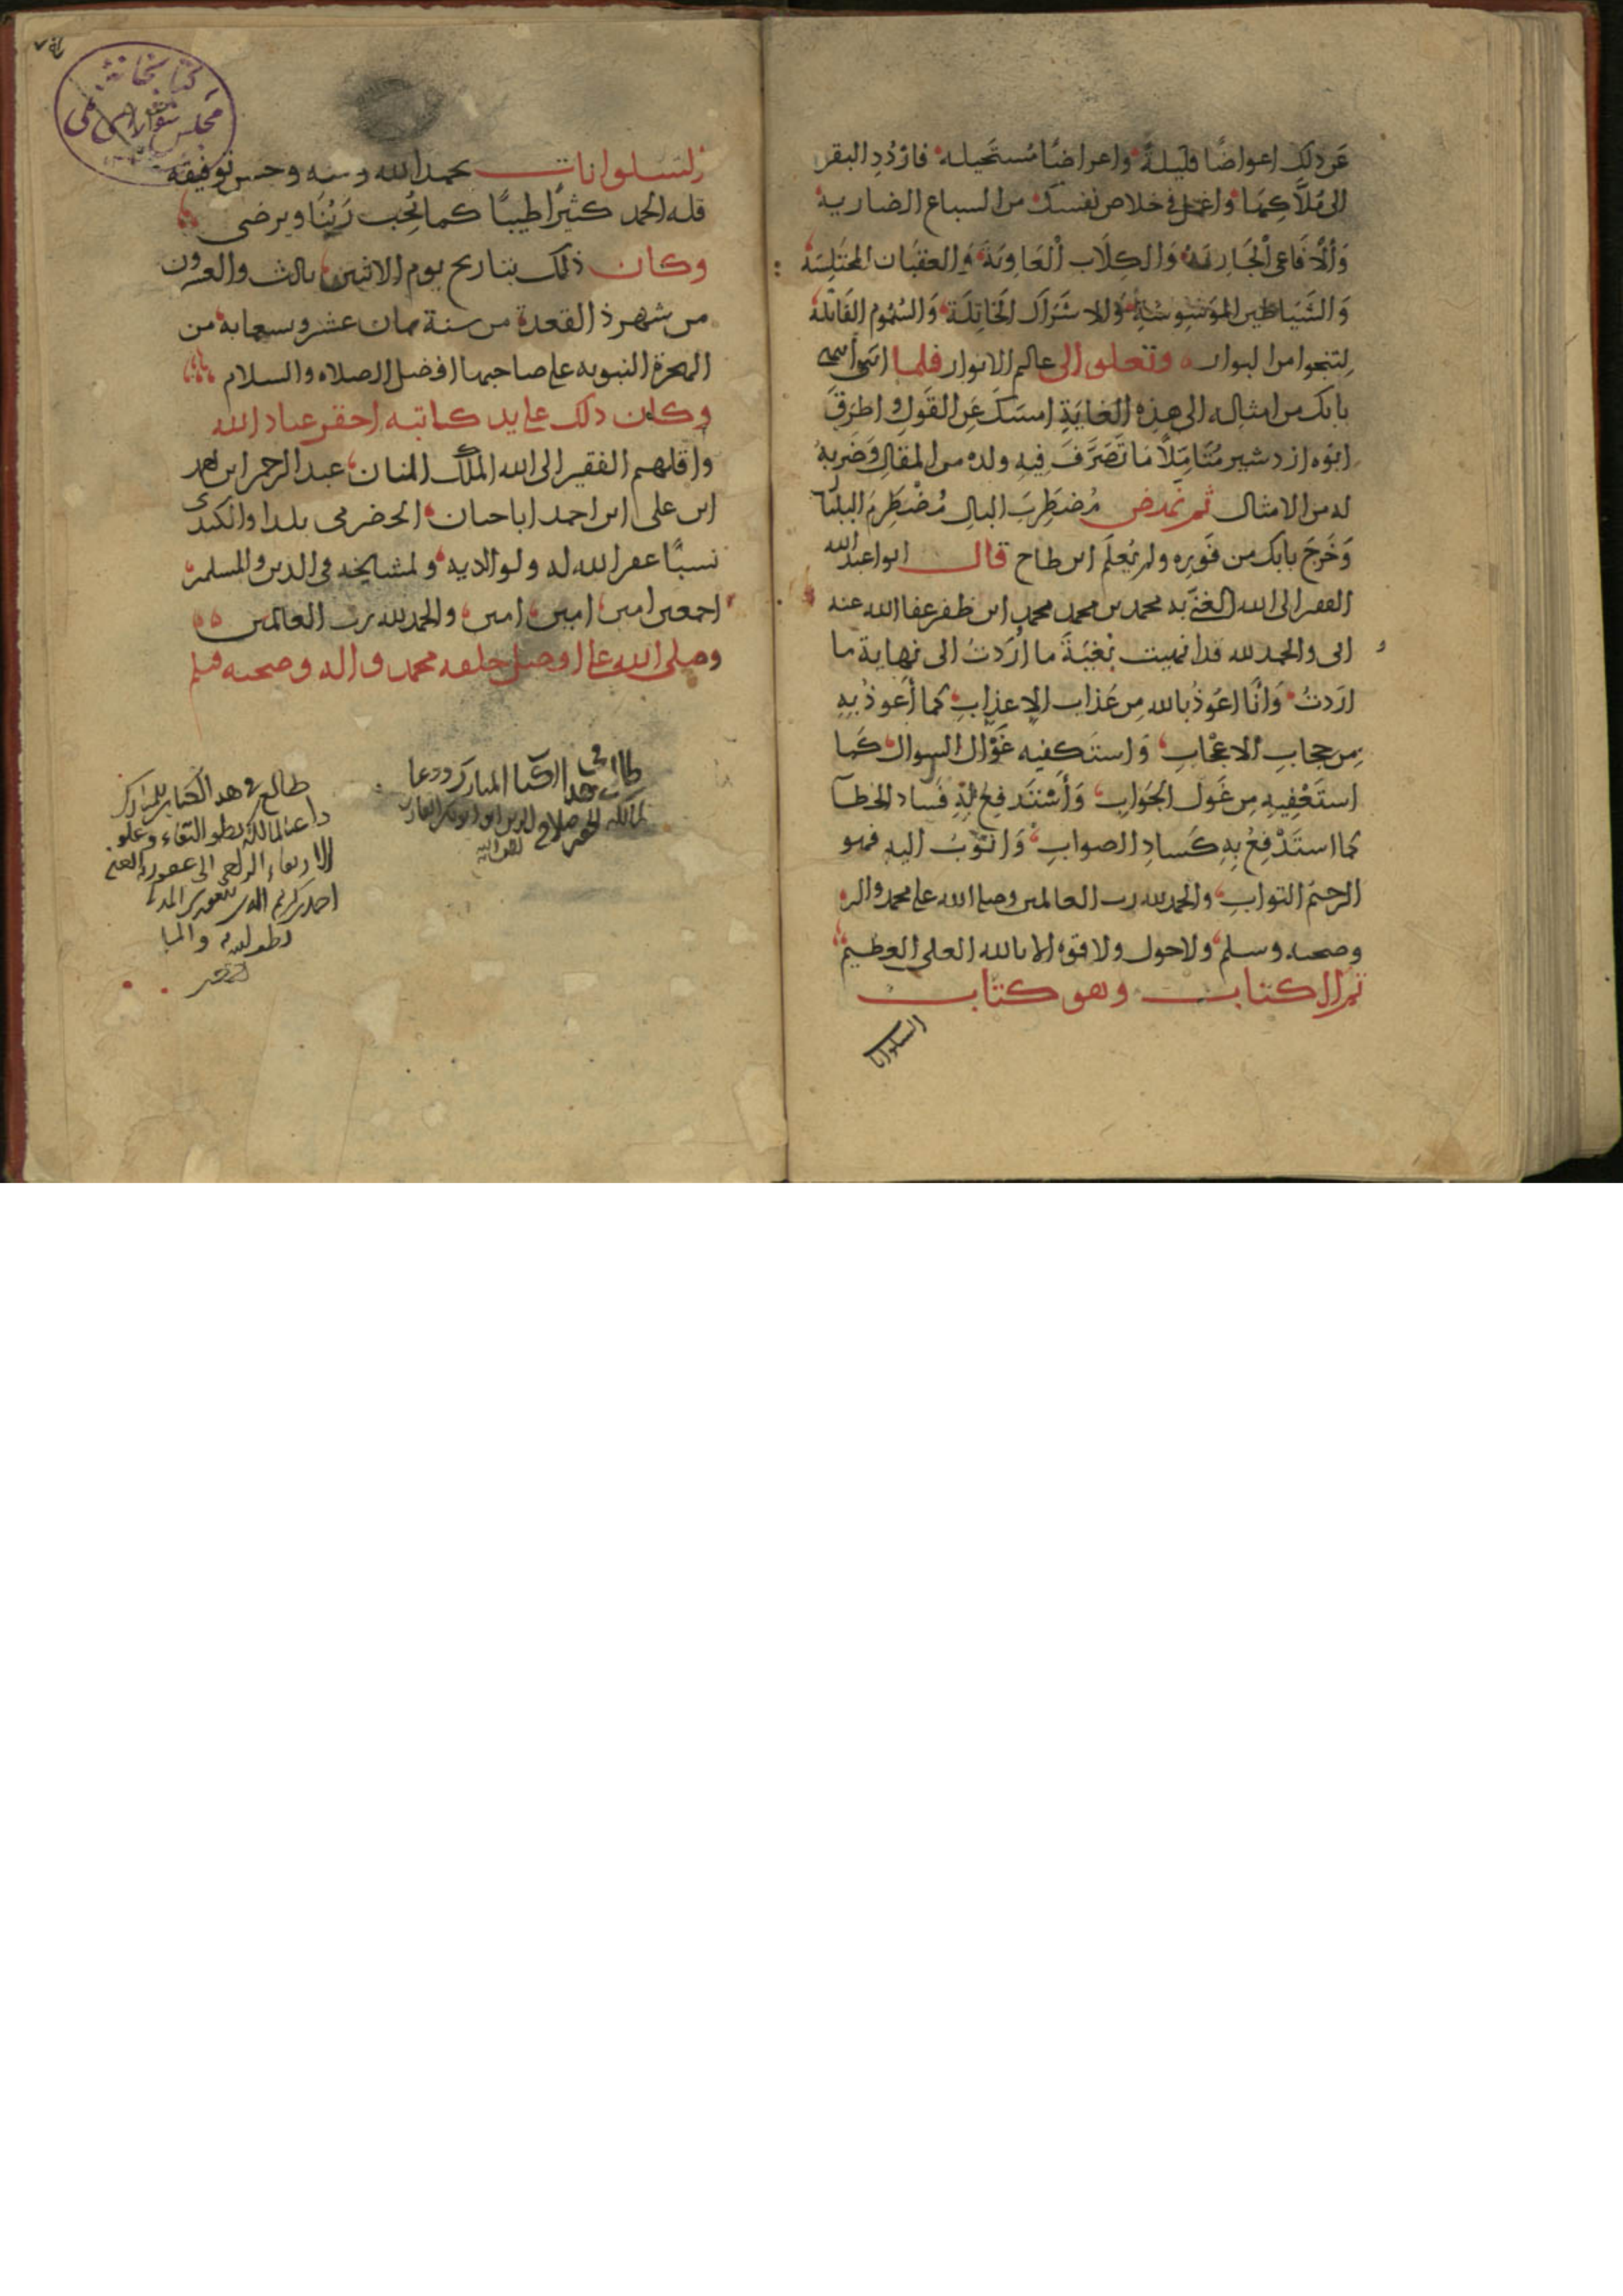 عَن ذلك اعواضًا قليلةً واعراضًا مُستَحيله فازدُدِ البقر
الى مُلَّاكِهَا واعمل فى خلاص نفسك من السباع الضاريه
وَالْافَاعى الْجَارِيَه وَالكلَاب الْعَاويَة وَالعقبَان المختَلِسَة
وَالشَيَاطين المُوَسْوِسَة وَالاشَرَاك الخَاتِلَة وَالسُمُوم القَاتلة
لِتنجوا من البوار وتعلق الى عالم الانوار فلما انتهى
بابك من امثاله الى هذِه الغايَةِ امسَكَ عَن القَول واطرَقَ
ابُوه ازدشير مُتَامِّلاً مَا تَصَرَّفَ فيهِ ولده من المقال وَضَربهُ
له من الامثال ثم نهض مُضطَرِبَ البالِ مُضْطَرِمَ البلبَال
وَخَرَجَ بابك من فَورِه ولم يُعلَم اين طاح قال ابوا عبد الله
الفقير الى الله الغنى به محمد بن محمد محمد ابن ظفر عفا الله عنه
انى والحمد لله قد انهيت بُغيَةَ ما أرَدتُ الى نهاية ما
اردتُ وَانَا اعُوذُ بالله مِن عَذاب الاعذابِ كما أعُوذُ بهِ
مِن حجابِ الاعجَابِ وَاستكفيه غَوَّال السوال كَما
استَعْفِيهِ مِن غَول الجَوابِ وَأستَدفِعُ بهِ فَسَاد الخطآ
كما استَدْفِعُ بِهِ كَسَادِ الصوابِ وَاتوبُ اليه فهو
الرحيمُ التوابِ والحمد لله رب العالمين وصلى الله على محمد واله
وصحبه وسلم ولا حول ولا قوه الا بالله العلى العظيم
تم الكتاب وهو كتاب
السلوانا
السلوانات بحمد الله ومنه وحسن توفيقه
فله الحمد كثيرًا طيبًا كما يُحِب رَبُنَا ويرضى
وكان ذلك بتاريخ يوم الاثنين ثالث والعشرون
من شهر ذ القعدة من سنة ثمان عشر وسبعمايه من
الهجرة النبويه على صاحبها افضل الصلاه والسلام
وكان ذلك على يد كاتبه احقر عباد الله
واقلهم الفقير الى الله الملك المنان عبد الرحمن ابن احمد
ابن على ابن احمد اباحسان الحضرمى بلدا والكندى
نسبًا غفر الله له ولوالديه ولمشايخه فى الدين والمسلمين
اجمعين امين امين امين والحمد لله رب العالمين
وصلى الله على افضل خلقه محمد واله وصحبه وسلم
هدا الكتا المبارك ودعا
لمالكه صلاح الدين ابو بكر
طالع فى هدا الكتاب المبارك
داعيا لمالكه بطول البقاء وعلو
الارتقاء الراجى الى عفو ربه الغنى
احمد
كتابخانه
مجلس شوراى ملى